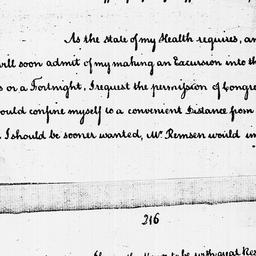 As the state of my Health requires, an
will soon admit of my making an Excursion into th
s or a Fortnight, I request the permission of Congre
ould confine myself to a convenient Distance from
I should be sooner wanted, Mr Remsen would in
216